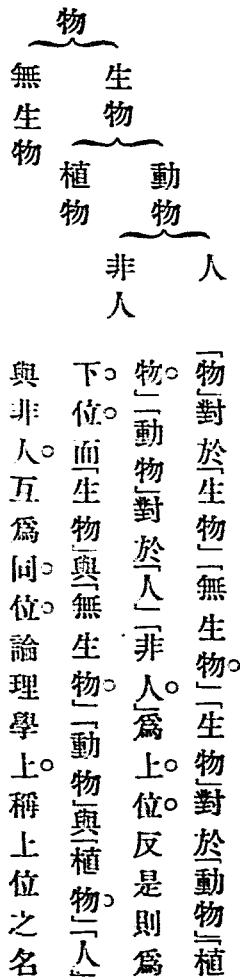 物
生物
無生物
動物
植物
人
非人
「物」對於「生物」「無生物」「生物」對於「動物」「植
物」「動物」對於「人」「非人」爲上位反是則爲
下位而「生物」與「無生物」「動物」與「植物」「人」
與非人互爲同位論理學上稱上位之名